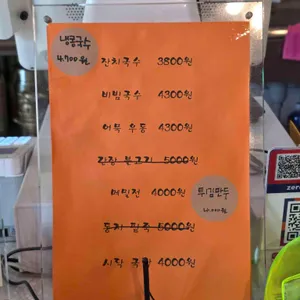 냉콩국수
4,700원
잔치국수 3800원
비빔국수 4300원
어묵 우동 4300원
5000원
메밀전 4000원
튀김만두
4,000원
동지 팥죽 5000원
시락 국 4000원